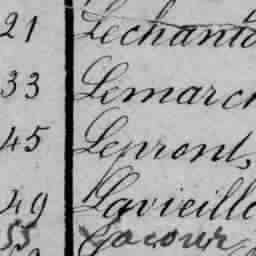 21 Lechanto
33 Lemarch
45 Lepront,
49 Lavieille
55 Lacour